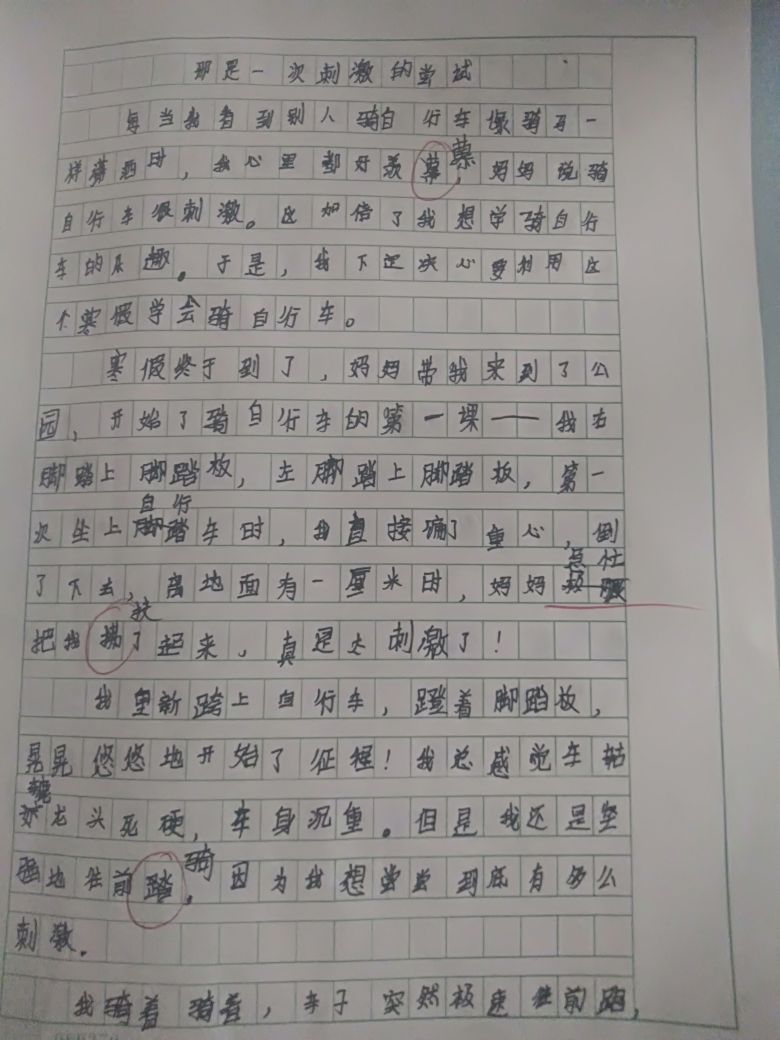 那是一次刺激的尝试
每当我看到别人骑自行车像骑马一
样潇洒时，我心里都好羡慕，妈妈说骑
自行车很刺激。这加倍了我想学骑自行
车的乐趣。于是，我下定决心要利用这
个寒假学会骑自行车。
寒假终于到了，妈妈带我来到了公
园，开始了骑自行车的第一课——我右
脚踏上脚踏板，左脚踏上脚踏板，第一
次坐上自行车时，我直接偏了重心，倒
了下去，离地面有一厘米时，妈妈急忙
把我扶了起来，真是太刺激了！
我重新跨上自行车，蹬着脚踏板，
晃晃悠悠地开始了征程！我总感觉车
龙头死硬，车身沉重。但是我还是坚
强地往前骑，因为我想尝尝到底有多么
刺激。
我骑着骑着，车子突然极速往前跑，